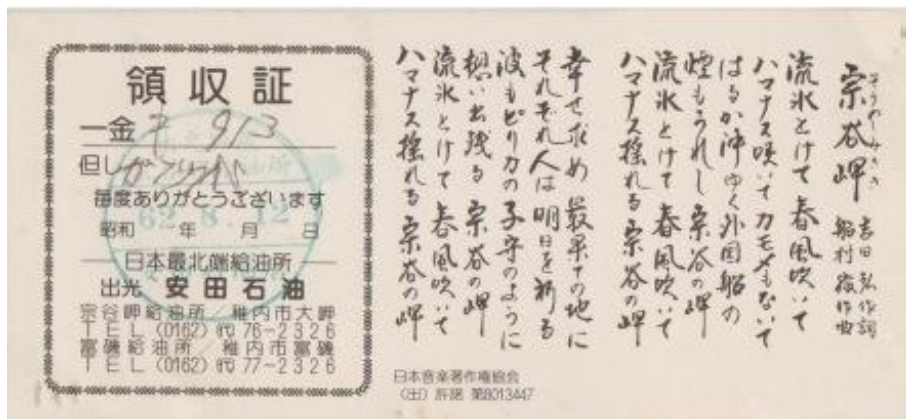 領収証
一金 ¥ 913
但しガソリン代
毎度ありがとうございます
62.8.12
昭和 年 月 日
日本最北端給油所
出光 安田石油
宗谷岬給油所/稚内市大岬
TEL(0162)代76-2326
富磯給油所/稚内市富磯
TEL(0162)代77-2326
宗谷岬
そうやみさき
吉田弘作詞
船村徹作曲
流氷とけて 春風吹いて
ハマナス咲いて カモメもないて
はるか沖ゆく 外国船の
煙もうれし 宗谷の岬
流氷とけて 春風吹いて
ハマナス揺れる 宗谷の岬
幸せ求め 最果ての地に
それぞれ人は 明日を祈る
波もピリカの 子守のように
想い出残る 宗谷の岬
流氷とけて 春風吹いて
ハマナス揺れる 宗谷の岬
日本音楽著作権協会
(出)許諾 第8013447